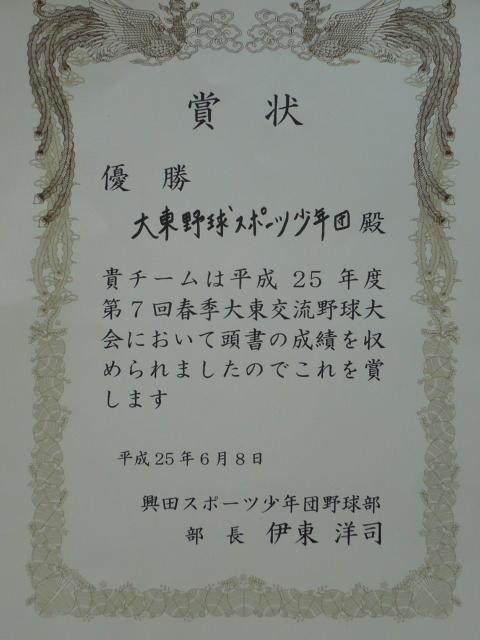 賞状
優勝
大東野球スポーツ少年団殿
貴チームは平成25年度
第7回春季大東交流野球大
会において頭書の成績を収
められましたのでこれを賞
します
平成25年6月8日
興田スポーツ少年団野球部
部長 伊東洋司